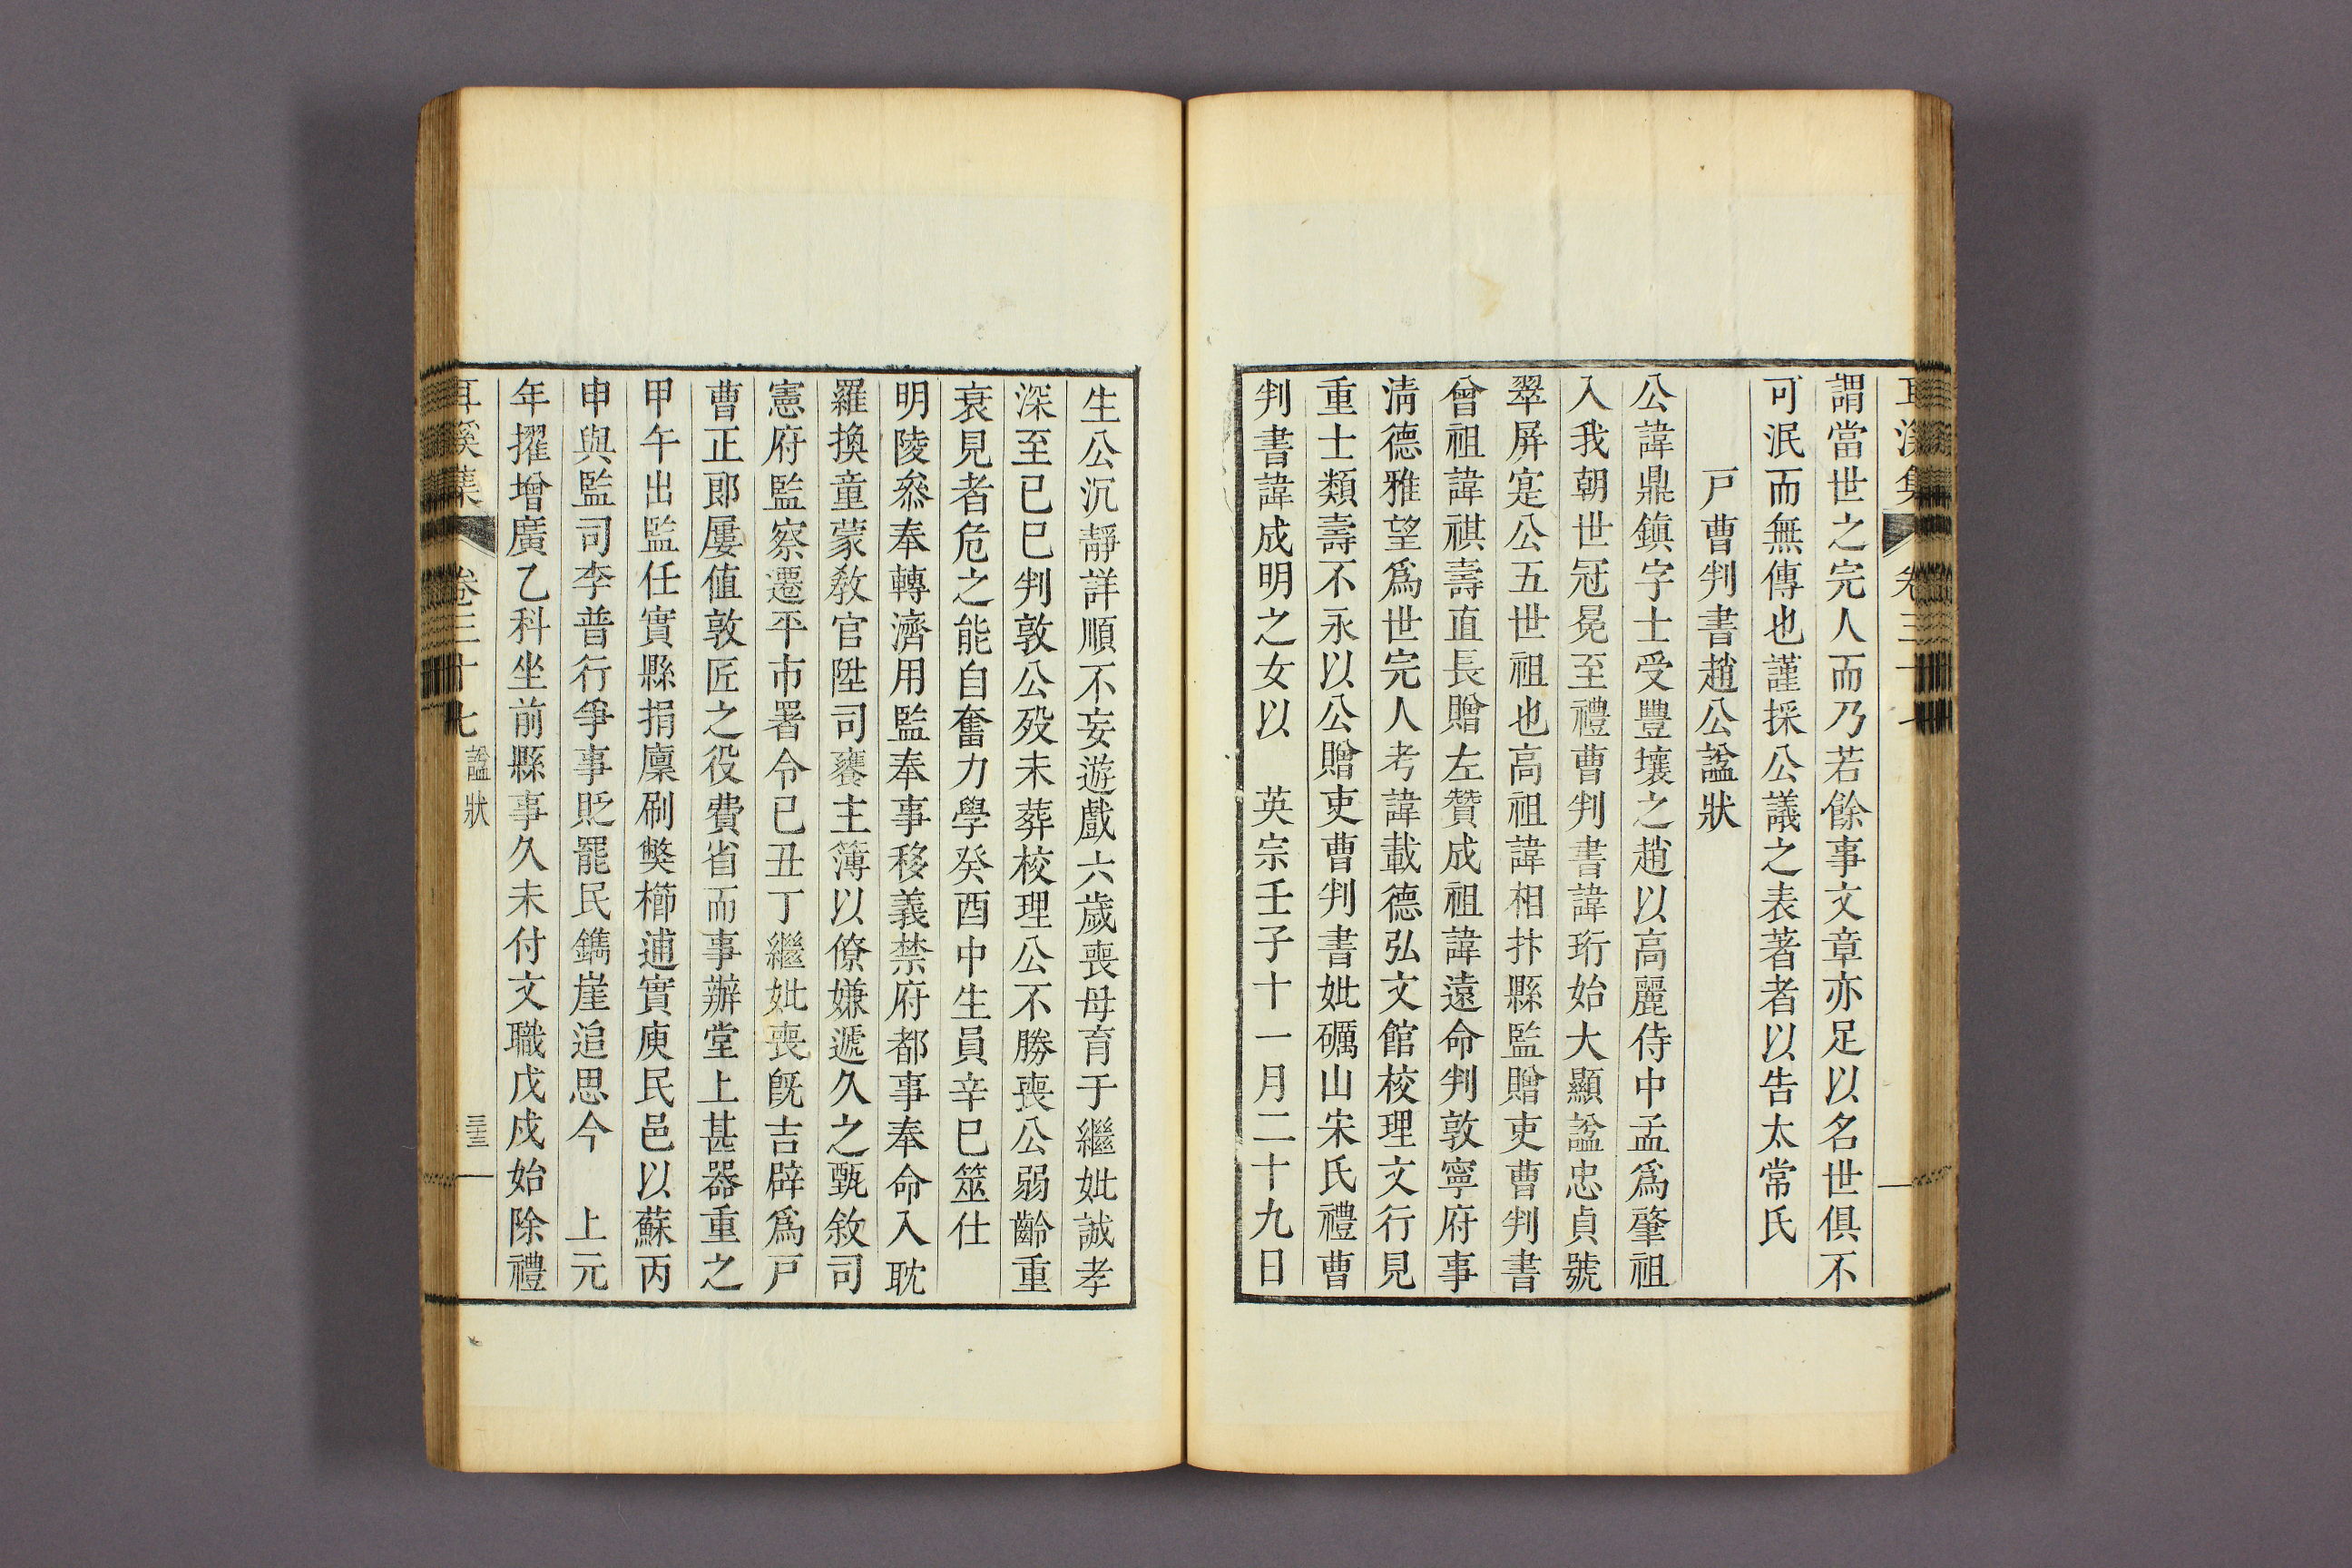 謂當世之完人而乃若餘事文章亦足以名世俱不
可泯而無傳也謹採公議之表著者以告太常氏
戶曹判書趙公諡狀
公諱鼎鎭字士受豐壤之趙以高麗侍中孟爲肇祖
入我朝世冠冕至禮曹判書諱珩始大顯諡忠貞號
翠屏寔公五世祖也高祖諱相抃縣監贈吏曹判書
曾祖諱祺壽直長贈左贊成祖諱遠命判敦寧府事
淸德雅望爲世完人考諱載德弘文館校理文行見
重士類壽不永以公贈吏曹判書妣礪山宋氏禮曹
判書諱成明之女以 英宗壬子十一月二十九日
生公沉靜詳順不妄遊戲六歲喪母育于繼妣誠孝
深至已巳判敦公歿未葬校理公不勝喪公弱齡重
衰見者危之能自奮力學癸酉中生員辛巳筮仕
明陵叅奉轉濟用監奉事移義禁府都事奉命入耽
羅換童蒙敎官陞司饔主簿以僚嫌遞久之甄敘司
憲府監察遷平市署令已丑丁繼妣喪旣吉辟爲戶
曹正郞屢値敦匠之役費省而事辦堂上甚器重之
甲午出監任實縣捐廩刷獘櫛逋實庾民邑以蘇丙
申與監司李普行爭事貶罷民鐫崖追思今 上元
年擢增廣乙科坐前縣事久未付文職戊戌始除禮
耳溪集 卷三十七 諡狀 三十三